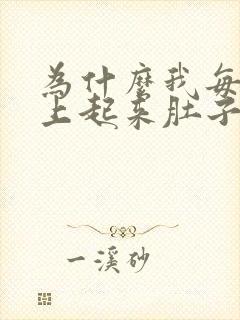 為什麼我每
上起来肚子
一溪砂